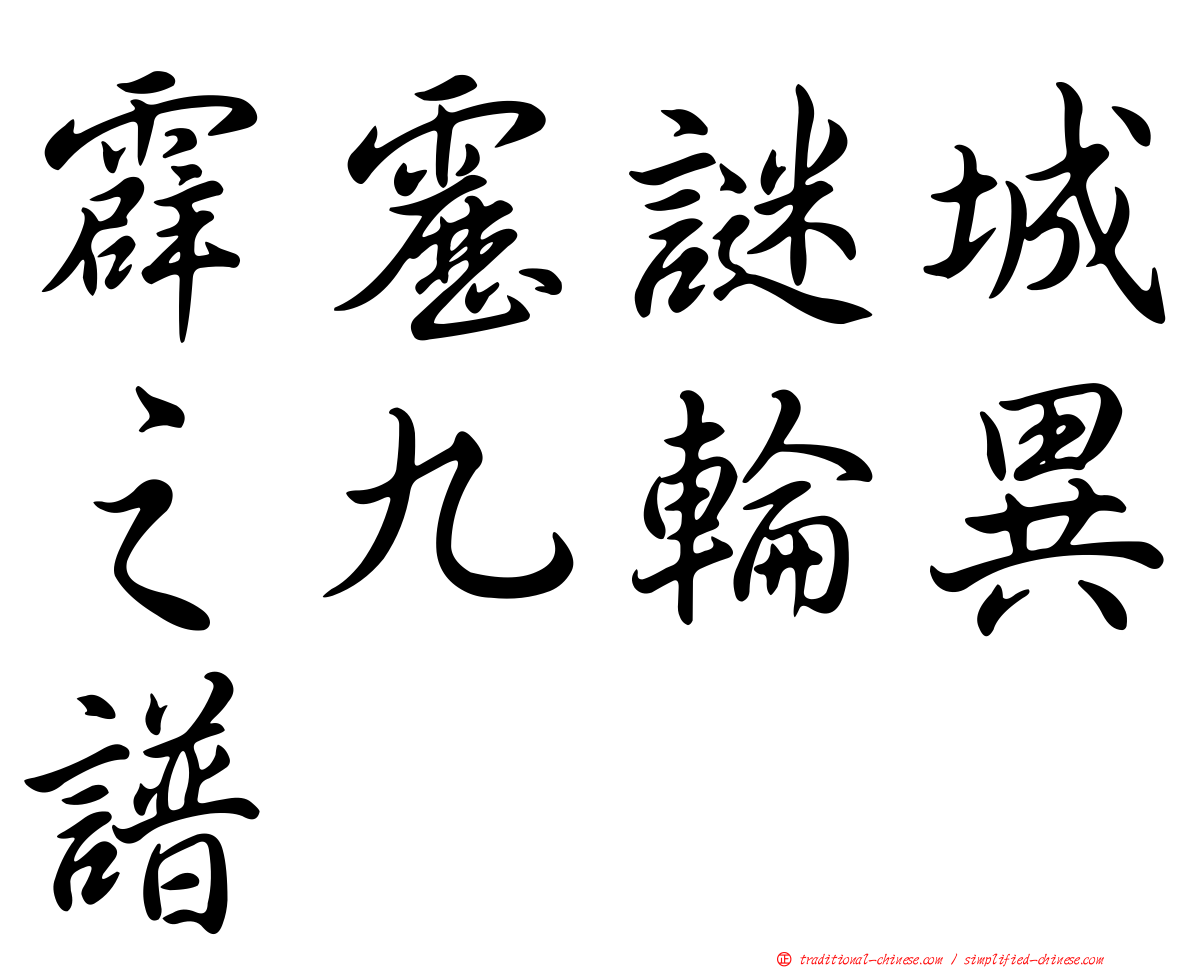 霹靂謎城
之九輪異
譜
㊣ traditional-chinese.com / simplified-chinese.com